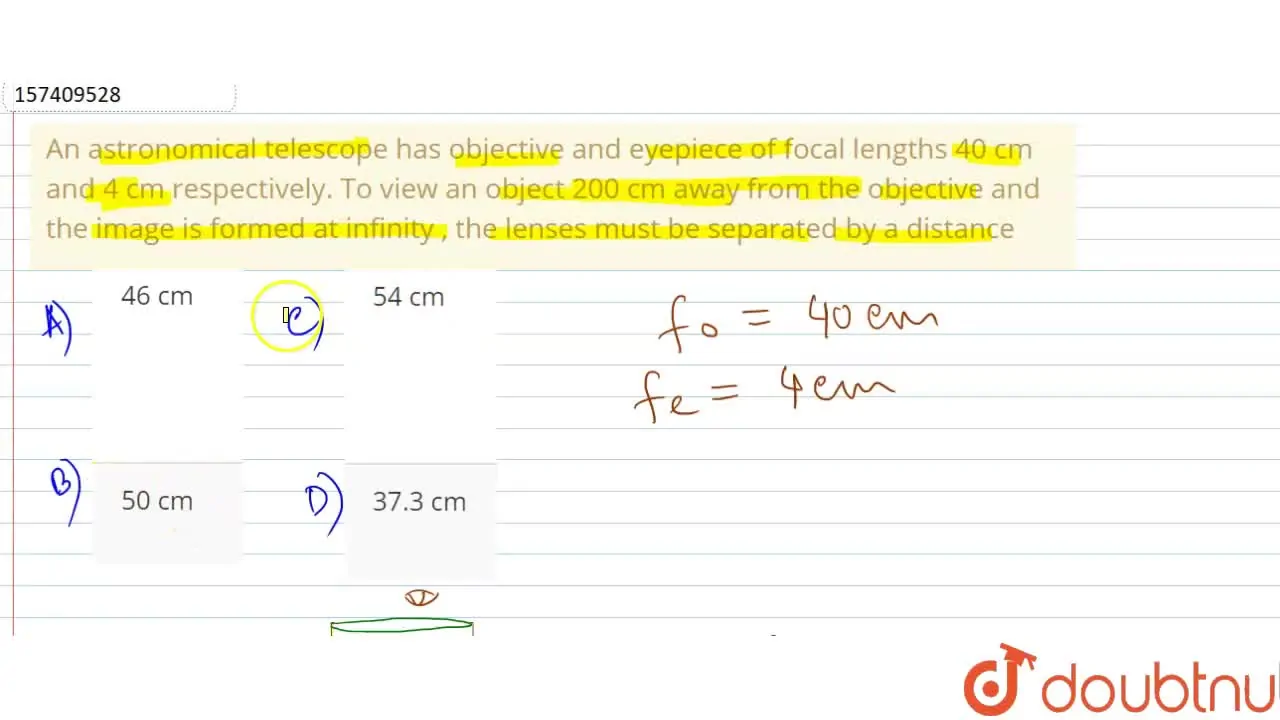 157409528
An astronomical telescope has objective and eyepiece of focal lengths 40 cm
and 4 cm respectively. To view an object 200 cm away from the objective and
the image is formed at infinity , the lenses must be separated by a distance
A) 46 cm C) 54 cm
fo = 40 cm
fe = 4 cm
B) 50 cm D) 37.3 cm
doubtnut